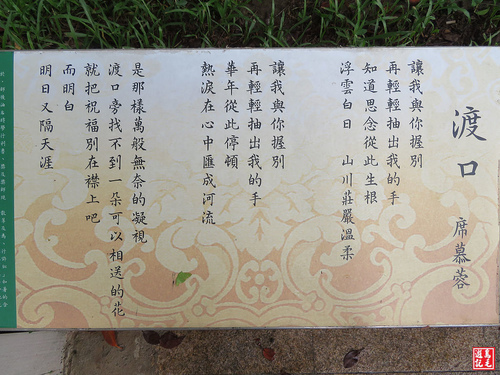 渡口　席慕蓉
讓我與你握別
再輕輕抽出我的手
知道思念從此生根
浮雲白日　山川莊嚴溫柔
讓我與你握別
再輕輕抽出我的手
華年從此停頓
熱淚在心中匯成河流
是那樣萬般無奈的凝視
渡口旁找不到一朵可以相送的花
就把祝福別在襟上吧
而明白
明日又隔天涯